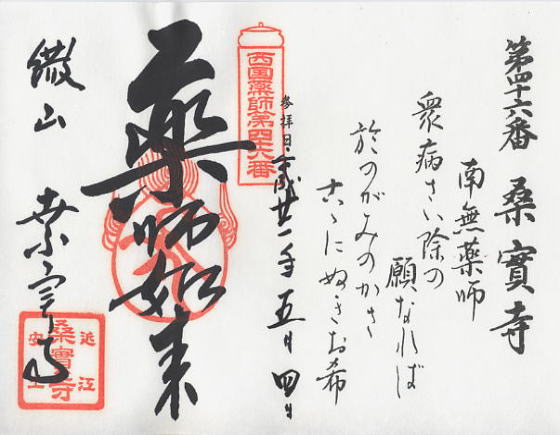 第四十六番 桑實寺
南無薬師
衆病さい除の
願なれば
於のがみのかさ
古ゝにぬきお希
参拝日 平成廿一年五月四日
西国薬師第四十六番
藥師如来
繖山 桑實寺
近江
桑實寺
安土